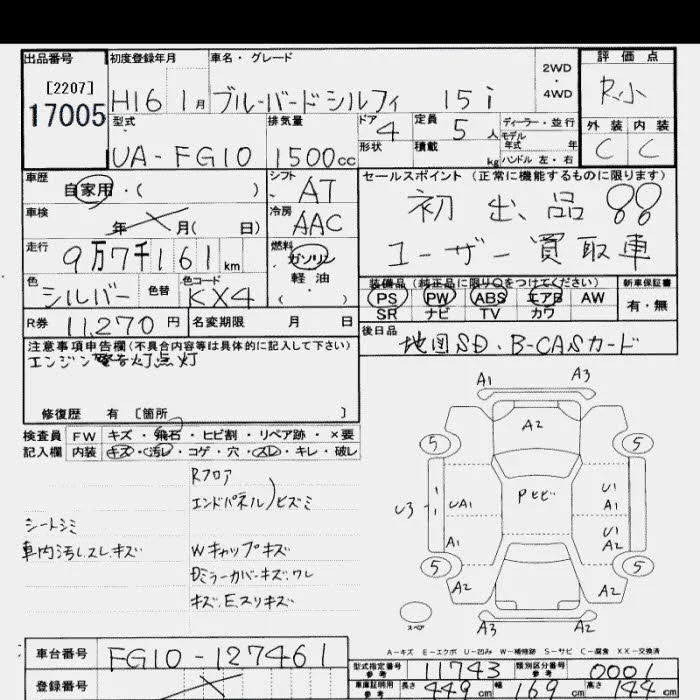 出品番号 初度登録年月 車名・グレード 評価点
[2207]
17005
H16 1月 ブルーバードシルフィ 15i
2WD
・
4WD
R小
外装 内装
C C
型式 排気量 ドア 定員 ディーラー・並行
UA-FG10 1500cc 4 5人
モデル年式 年
形状 積載 kg ハンドル 左・右
車歴 自家用・( )
シフト AT
車検 年 月( 日)
冷房 AAC
走行 9万7千161km
燃料 ガソリン
軽油
( )
色 シルバー 色替 色コード KX4
R券 11,270円 名変期限 月 日
セールスポイント(正常に機能するものに限ります)
初出品
ユーザー買取車
装備品(純正品に限り○をつけてください) 新車保証書
PS PW ABS エアB AW 有・無
SR ナビ TV カワ
後日品
地図SD・B-CASカード
注意事項申告欄(不具合内容等は具体的に記入して下さい)
エンジン警告灯点灯
修復歴 有 [箇所 ]
検査員 FW キズ・飛石・ヒビ割・リペア跡・×要
記入欄 内装 キズ・汚レ・コゲ・穴・スレ・キレ・破レ
Rフロア
エンドパネル)ヒズミ
シートシミ
車内汚レスレキズ
Wキャップキズ
Dミラーカバーキズ.ワレ
キズ.E.スリキズ
A1 A3
A2
5 5
Pヒビ
U3 UA1 U1
A1
A1 U1
A2
5 5
A2 A2
スペア
A3 A2
A-キズ E-エクボ U-凹み W-補修跡 S-サビ C-腐食 XX-交換済
車台番号 FG10-127461
登録番号
型式指定番号 参考 11743 類別区分番号 参考 0001
車庫証明用 参考 長さ 449cm 幅 169cm 高さ 144cm